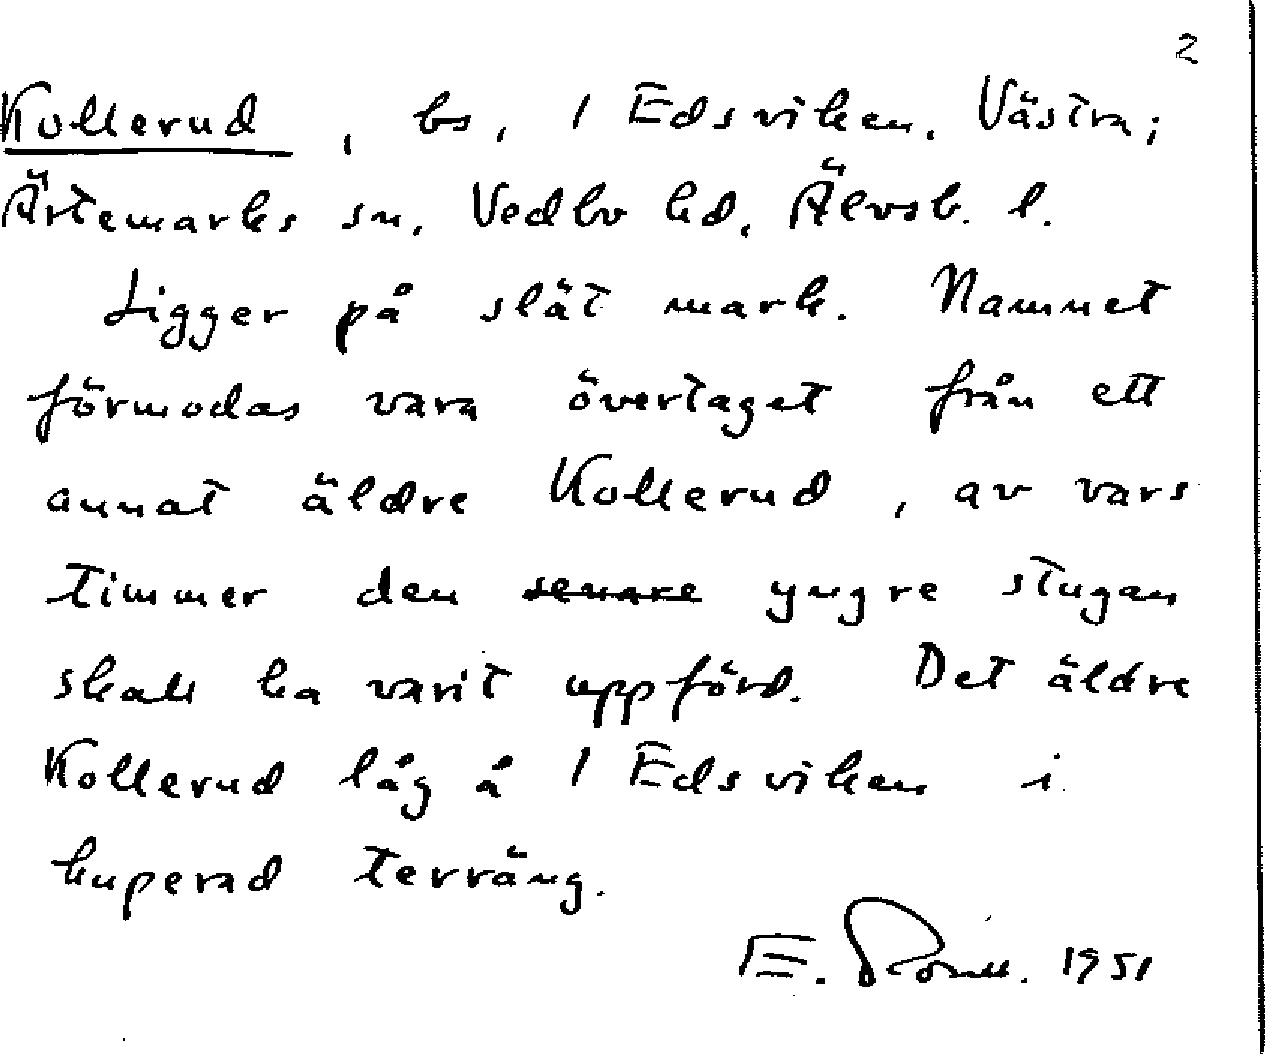 2
Kollerud, bs, / Edsviken, Västra;
Ärtemarks sn, Vedbo hd, Älvsb. l.
Ligger på slät mark. Namnet
förmodas vara övertaget från ett
annat äldre Kollerud, av vars
timmer den senare yngre stugan
skall ha varit uppförd. Det äldre
Kollerud låg å / Edsviken i
kuperad terräng.
E. 1951